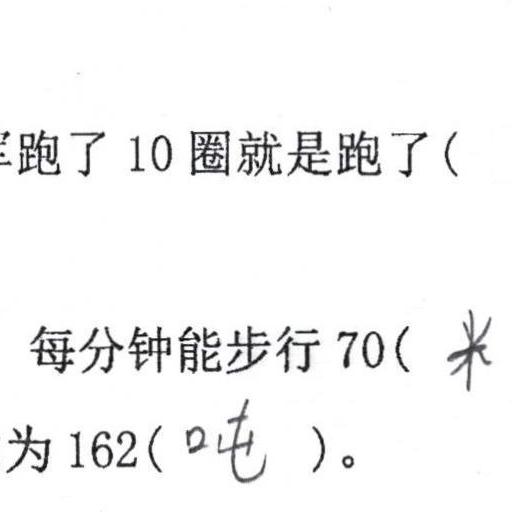 跑了 10 圈就是跑了(
每分钟能步行 70( 米
为 162( 吨 )。